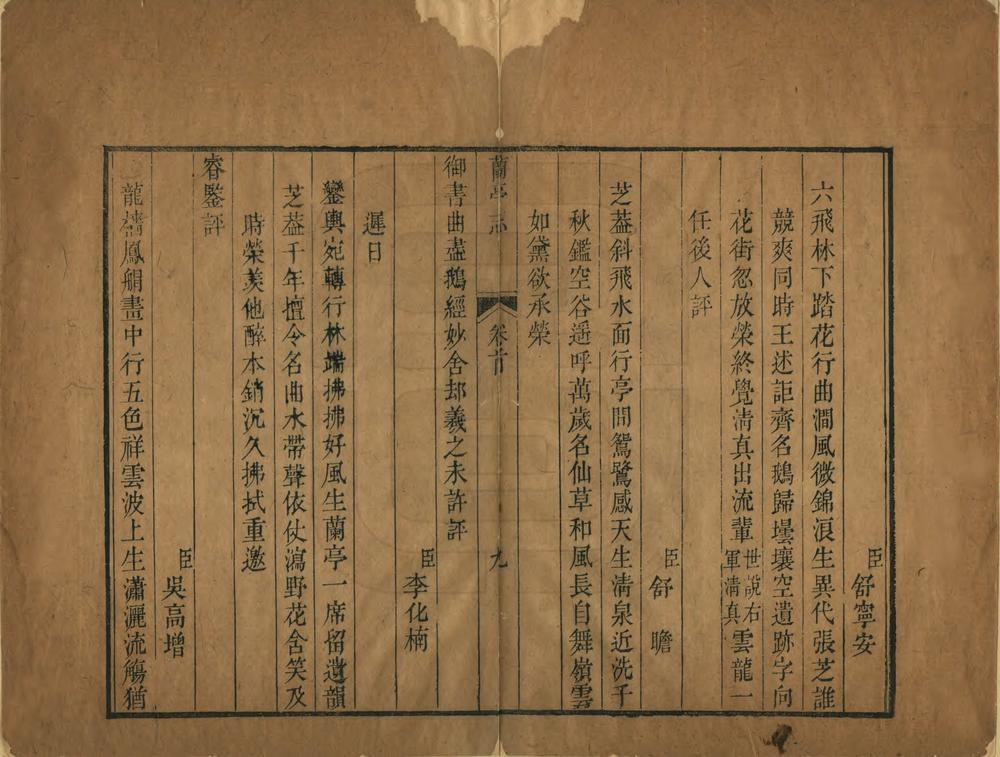 臣舒寧安
六飛林下踏花行曲澗風微錦浪生異代張芝誰
競爽同時王述詎齊名鵝歸曇壤空遺跡字向
花街忽放榮終覺淸真出流輩世說右軍淸真雲龍一
任後人評
臣舒　瞻
芝葢斜飛水面行亭間鴛鷺感天生淸泉近洗千
秋鑑空谷遥呼萬歲名仙草和風長自舞嶺雲
如黛欲承榮
蘭亭志　卷首　九
御書曲盡鵝經妙舍却羲之未許評
臣李化楠
遲日
鑾輿宛轉行林端拂拂好風生蘭亭一席留遺韻
芝葢千年擅令名曲水帶聲依仗瀉野花舍笑及
時榮羨他醉本銷沉久拂拭重邀
睿鑒評
臣吳高增
龍艚鳳艒畵中行五色祥雲波上生瀟灑流觴猶